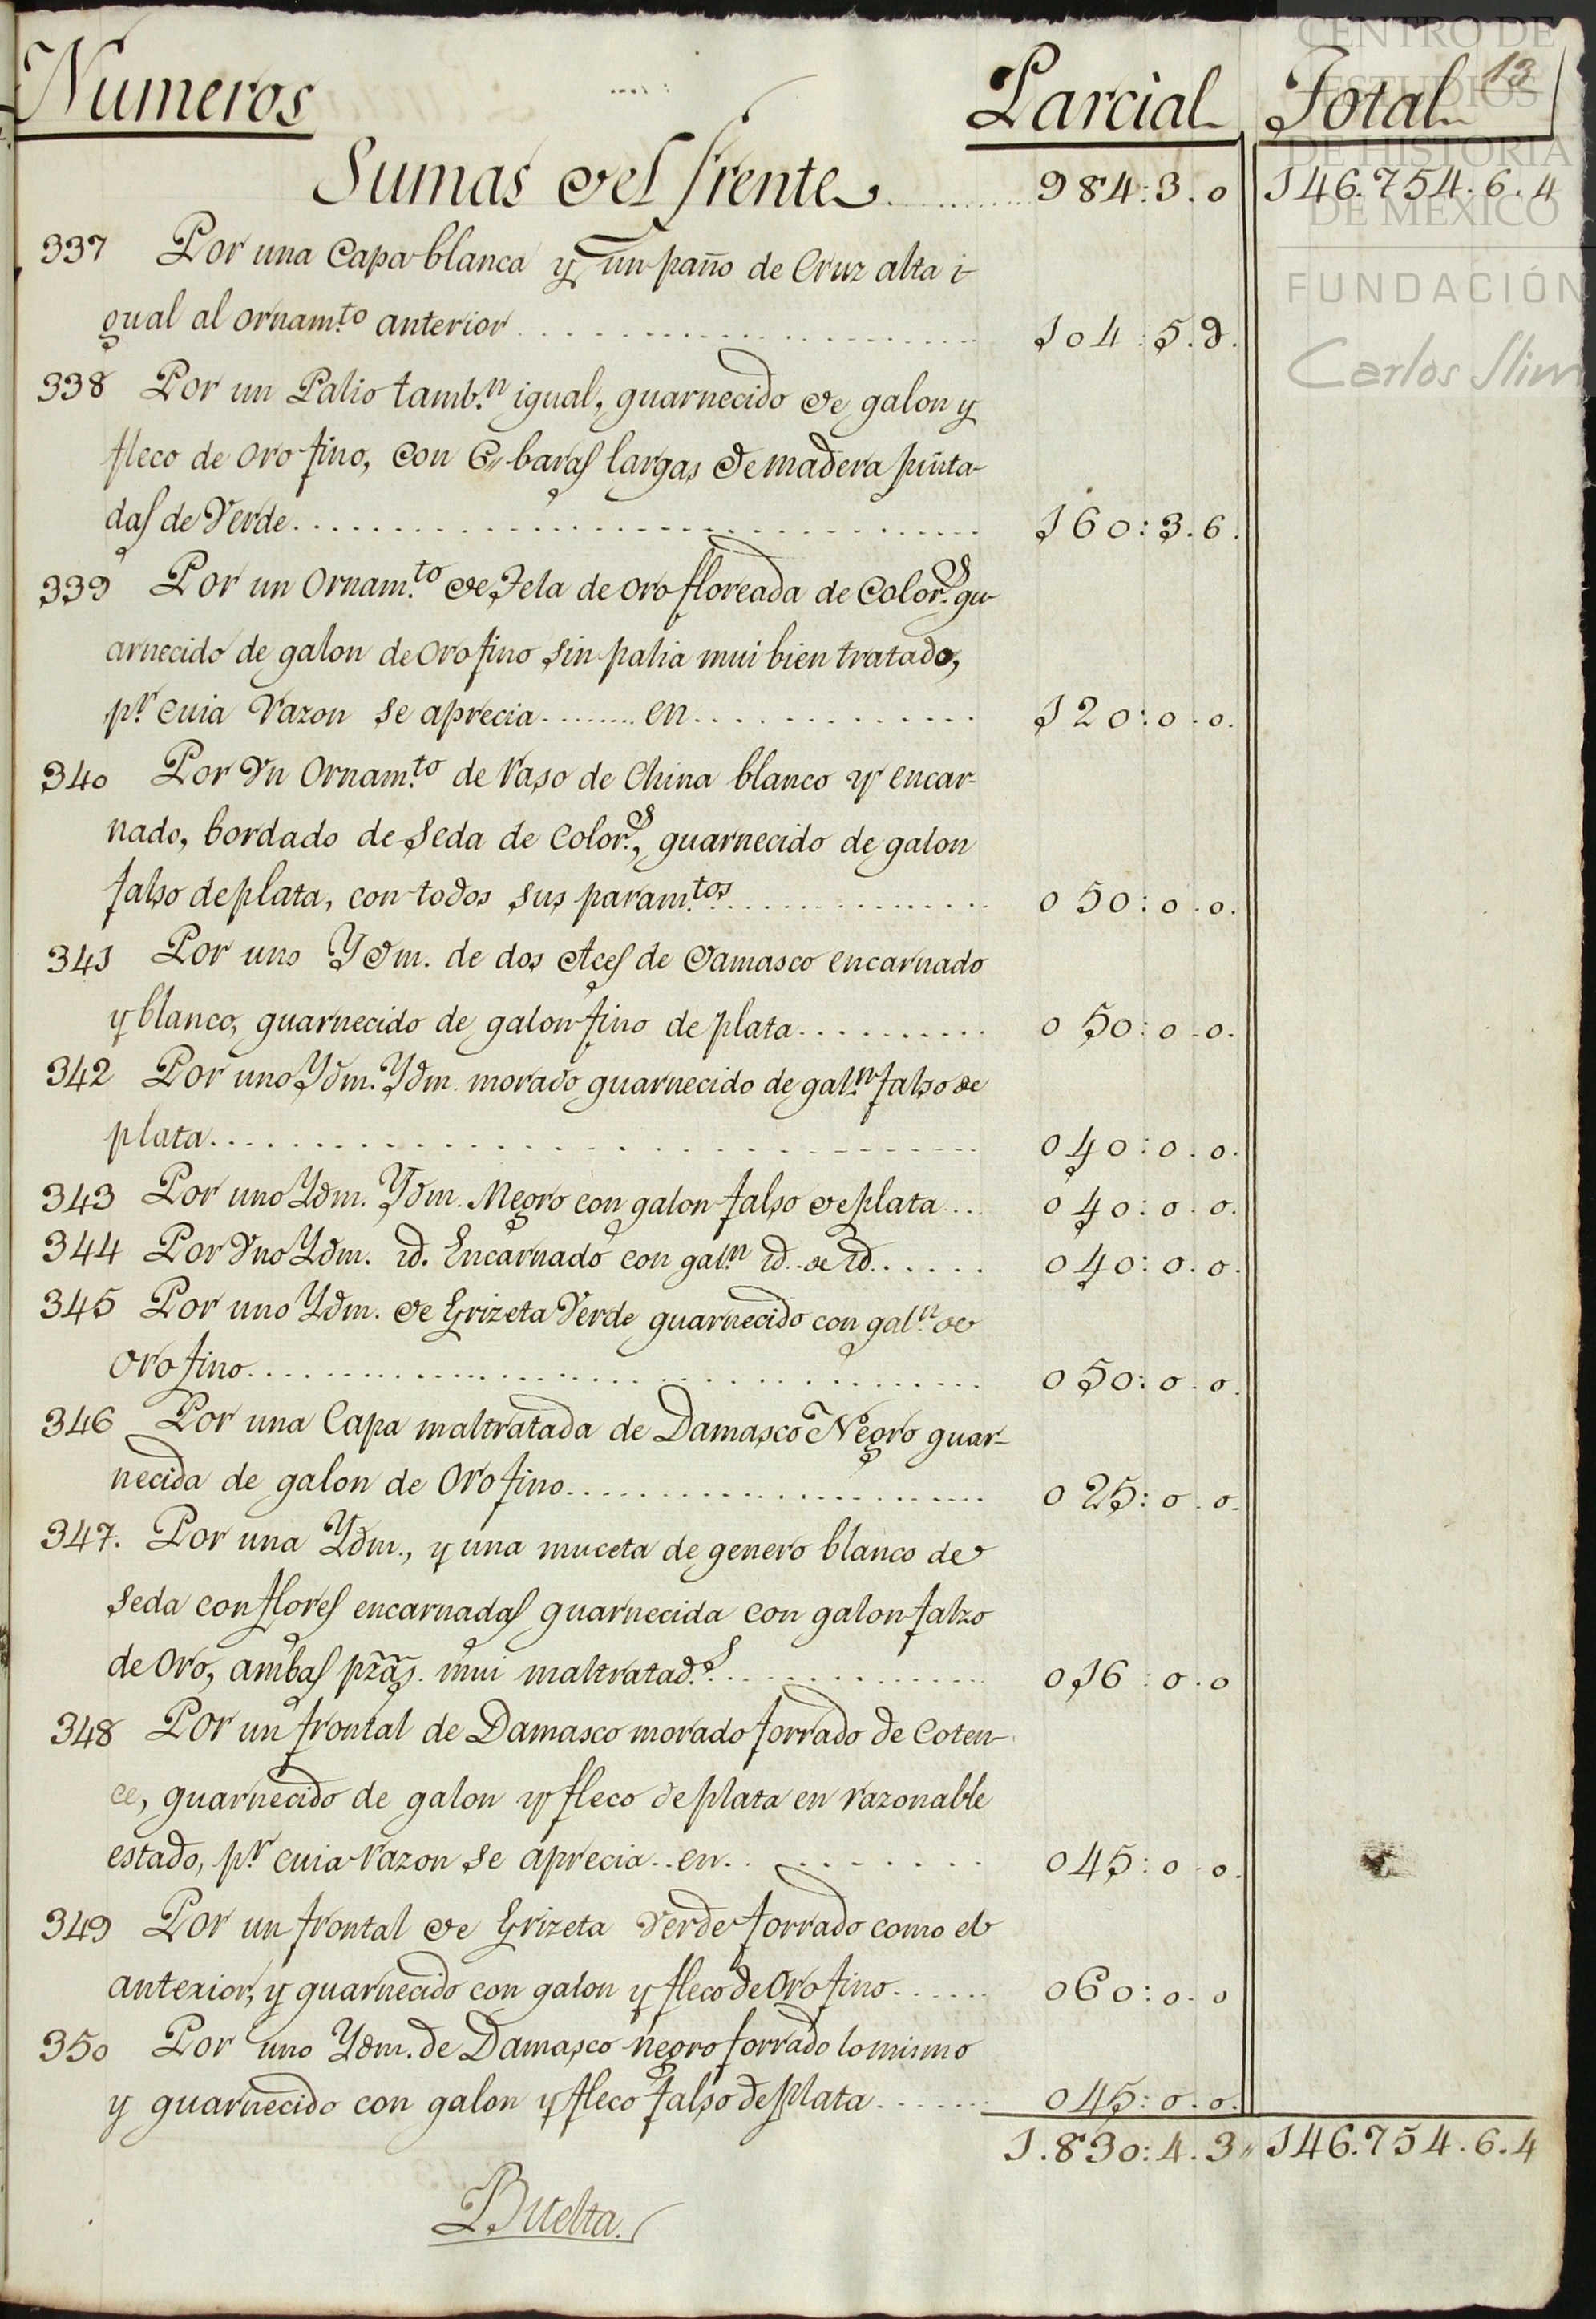 13
Numeros Parcial Total
Sumas del frente 984:3.0 146.754.6.4
337 Por una Capa blanca y un paño de Cruz alta i-
gual al ornam.to anterior 104:5.9.
338 Por un Palio tamb.n igual, guarnecido de galon y
fleco de oro fino, con 6,, baras largas de madera pinta-
das de Verde 160:3.6.
339 Por un Ornam.to de Tela de oro floreada de Color.s gu-
arnecido de galon de oro fino sin palia mui bien tratado,
p.r cuia razon se aprecia en 120:0.0.
340 Por Vn Ornam.to de raso de China blanco y encar-
nado, bordado de seda de color.s, guarnecido de galon
falso de plata, con todos sus param.tos 050:0.0.
341 Por uno Ydm. de dos Aces de Damasco encarnado
y blanco, guarnecido de galon fino de plata 050:0.0.
342 Por uno Ydm. Ydm. morado guarnecido de gal.n falso de
plata 040:0.0.
343 Por uno Ydm. Ydm. Negro con galon falso de plata 040:0.0.
344 Por Vno Ydm. id. Encarnado con gal.n id. de id. 040:0.0.
345 Por uno Ydm. de Grizeta Verde guarnecido con gal.n de
oro fino 050:0.0.
346 Por una Capa maltratada de Damasco Negro guar-
necida de galon de Oro fino 025:0.0.
347. Por una Ydm., y una muceta de genero blanco de
seda con flores encarnadas guarnecida con galon falzo
de Oro, ambas pzãs. mui maltratad.s 016:0.0
348 Por un frontal de Damasco morado forrado de Coten-
ce, guarnecido de galon y fleco de plata en razonable
estado, p.r cuia razon se aprecia en 045:0.0.
349 Por un frontal de Grizeta verde forrado como el
anterior, y guarnecido con galon y fleco de Oro fino 060:0.0
350 Por uno Ydm. de Damasco negro forrado lo mismo
y guarnecido con galon y fleco falso de plata 045:0.0.
1.830:4.3,, 146.754.6.4
Buelta.
CENTRO DE
ESTUDIOS
DE HISTORIA
DE MÉXICO
FUNDACIÓN
Carlos Slim